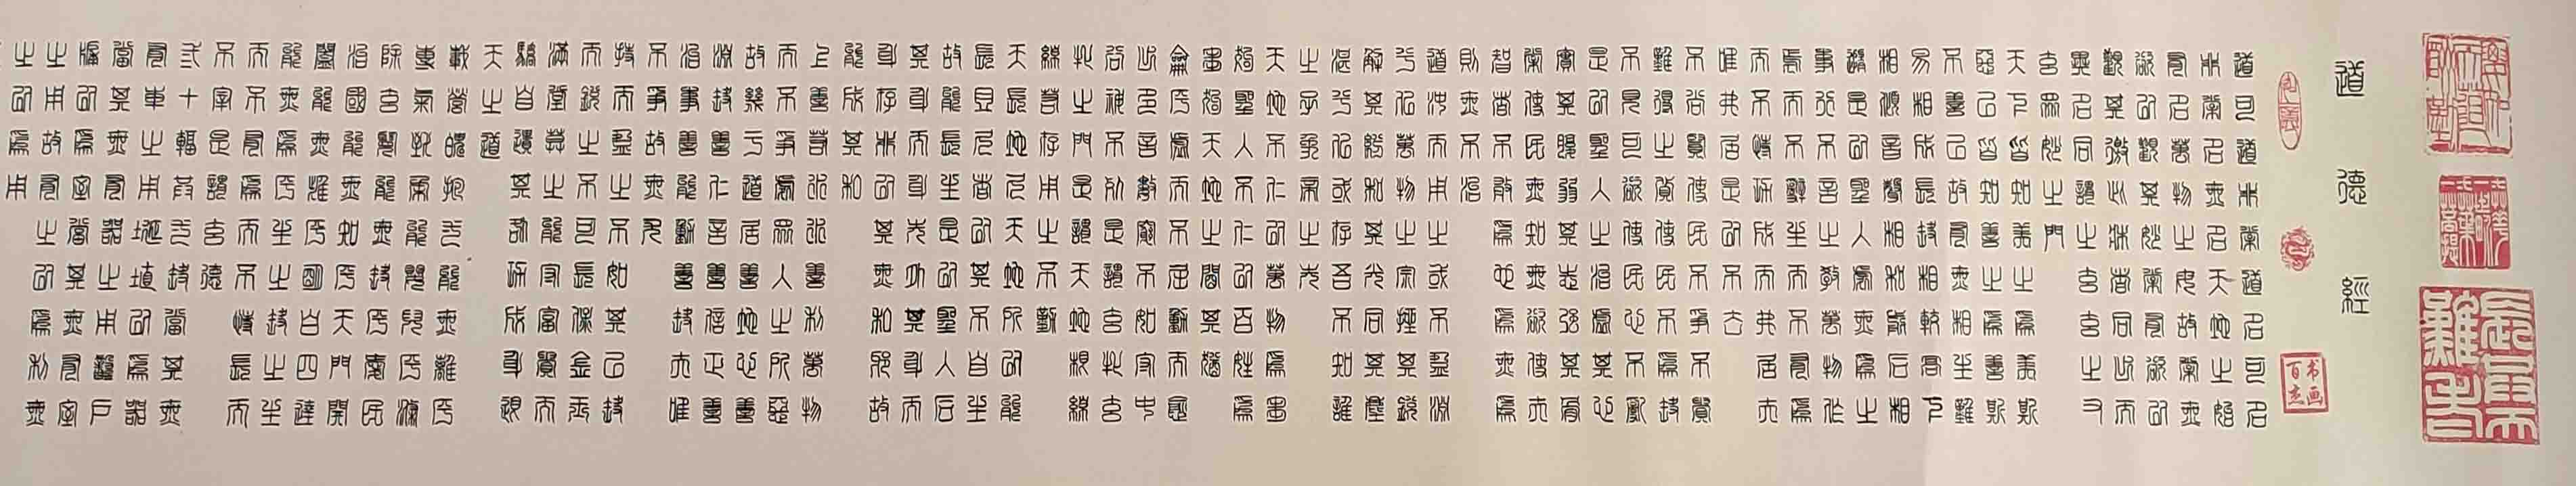 道德經
书画百杰
道可道非常道名可名
非常名無名天地之始
有名萬物之母故常無
欲以觀其妙常有欲以
觀其徼此兩者同出而
異名同謂之玄玄之又
玄眾妙之門
天下皆知美之為美斯
惡已皆知善之為善斯
不善已故有無相生難
易相成長短相較高下
相傾音聲相和前後相
隨是以聖人處無為之
事行不言之教萬物作
焉而不辭生而不有為
而不恃功成而弗居夫
唯弗居是以不去
不尚賢使民不爭不貴
難得之貨使民不為盜
不見可欲使民心不亂
是以聖人之治虛其心
實其腹弱其志強其骨
常使民無知無欲使夫
智者不敢為也為無為
則無不治
道沖而用之或不盈淵
兮似萬物之宗挫其銳
解其紛和其光同其塵
湛兮似或存吾不知誰
之子象帝之先
天地不仁以萬物為芻
狗聖人不仁以百姓為
芻狗天地之間其猶橐
籥乎虛而不屈動而愈
出多言數窮不如守中
谷神不死是謂玄牝玄
牝之門是謂天地根綿
綿若存用之不勤
天長地久天地所以能
長且久者以其不自生
故能長生是以聖人後
其身而身先外其身而
身存非以其無私邪故
能成其私
上善若水水善利萬物
而不爭處眾人之所惡
故幾於道居善地心善
淵與善仁言善信正善
治事善能動善時夫唯
不爭故無尤
持而盈之不如其已揣
而銳之不可長保金玉
滿堂莫之能守富貴而
驕自遺其咎功成身退
天之道
載營魄抱一能無離乎
專氣致柔能嬰兒乎滌
除玄覽能無疵乎愛民
治國能無知乎天門開
闔能為雌乎明白四達
能無為乎生之畜之生
而不有為而不恃長而
不宰是謂玄德
三十輻共一轂當其無
有車之用埏埴以為器
當其無有器之用鑿戶
牖以為室當其無有室
之用故有之以為利無
之以為用